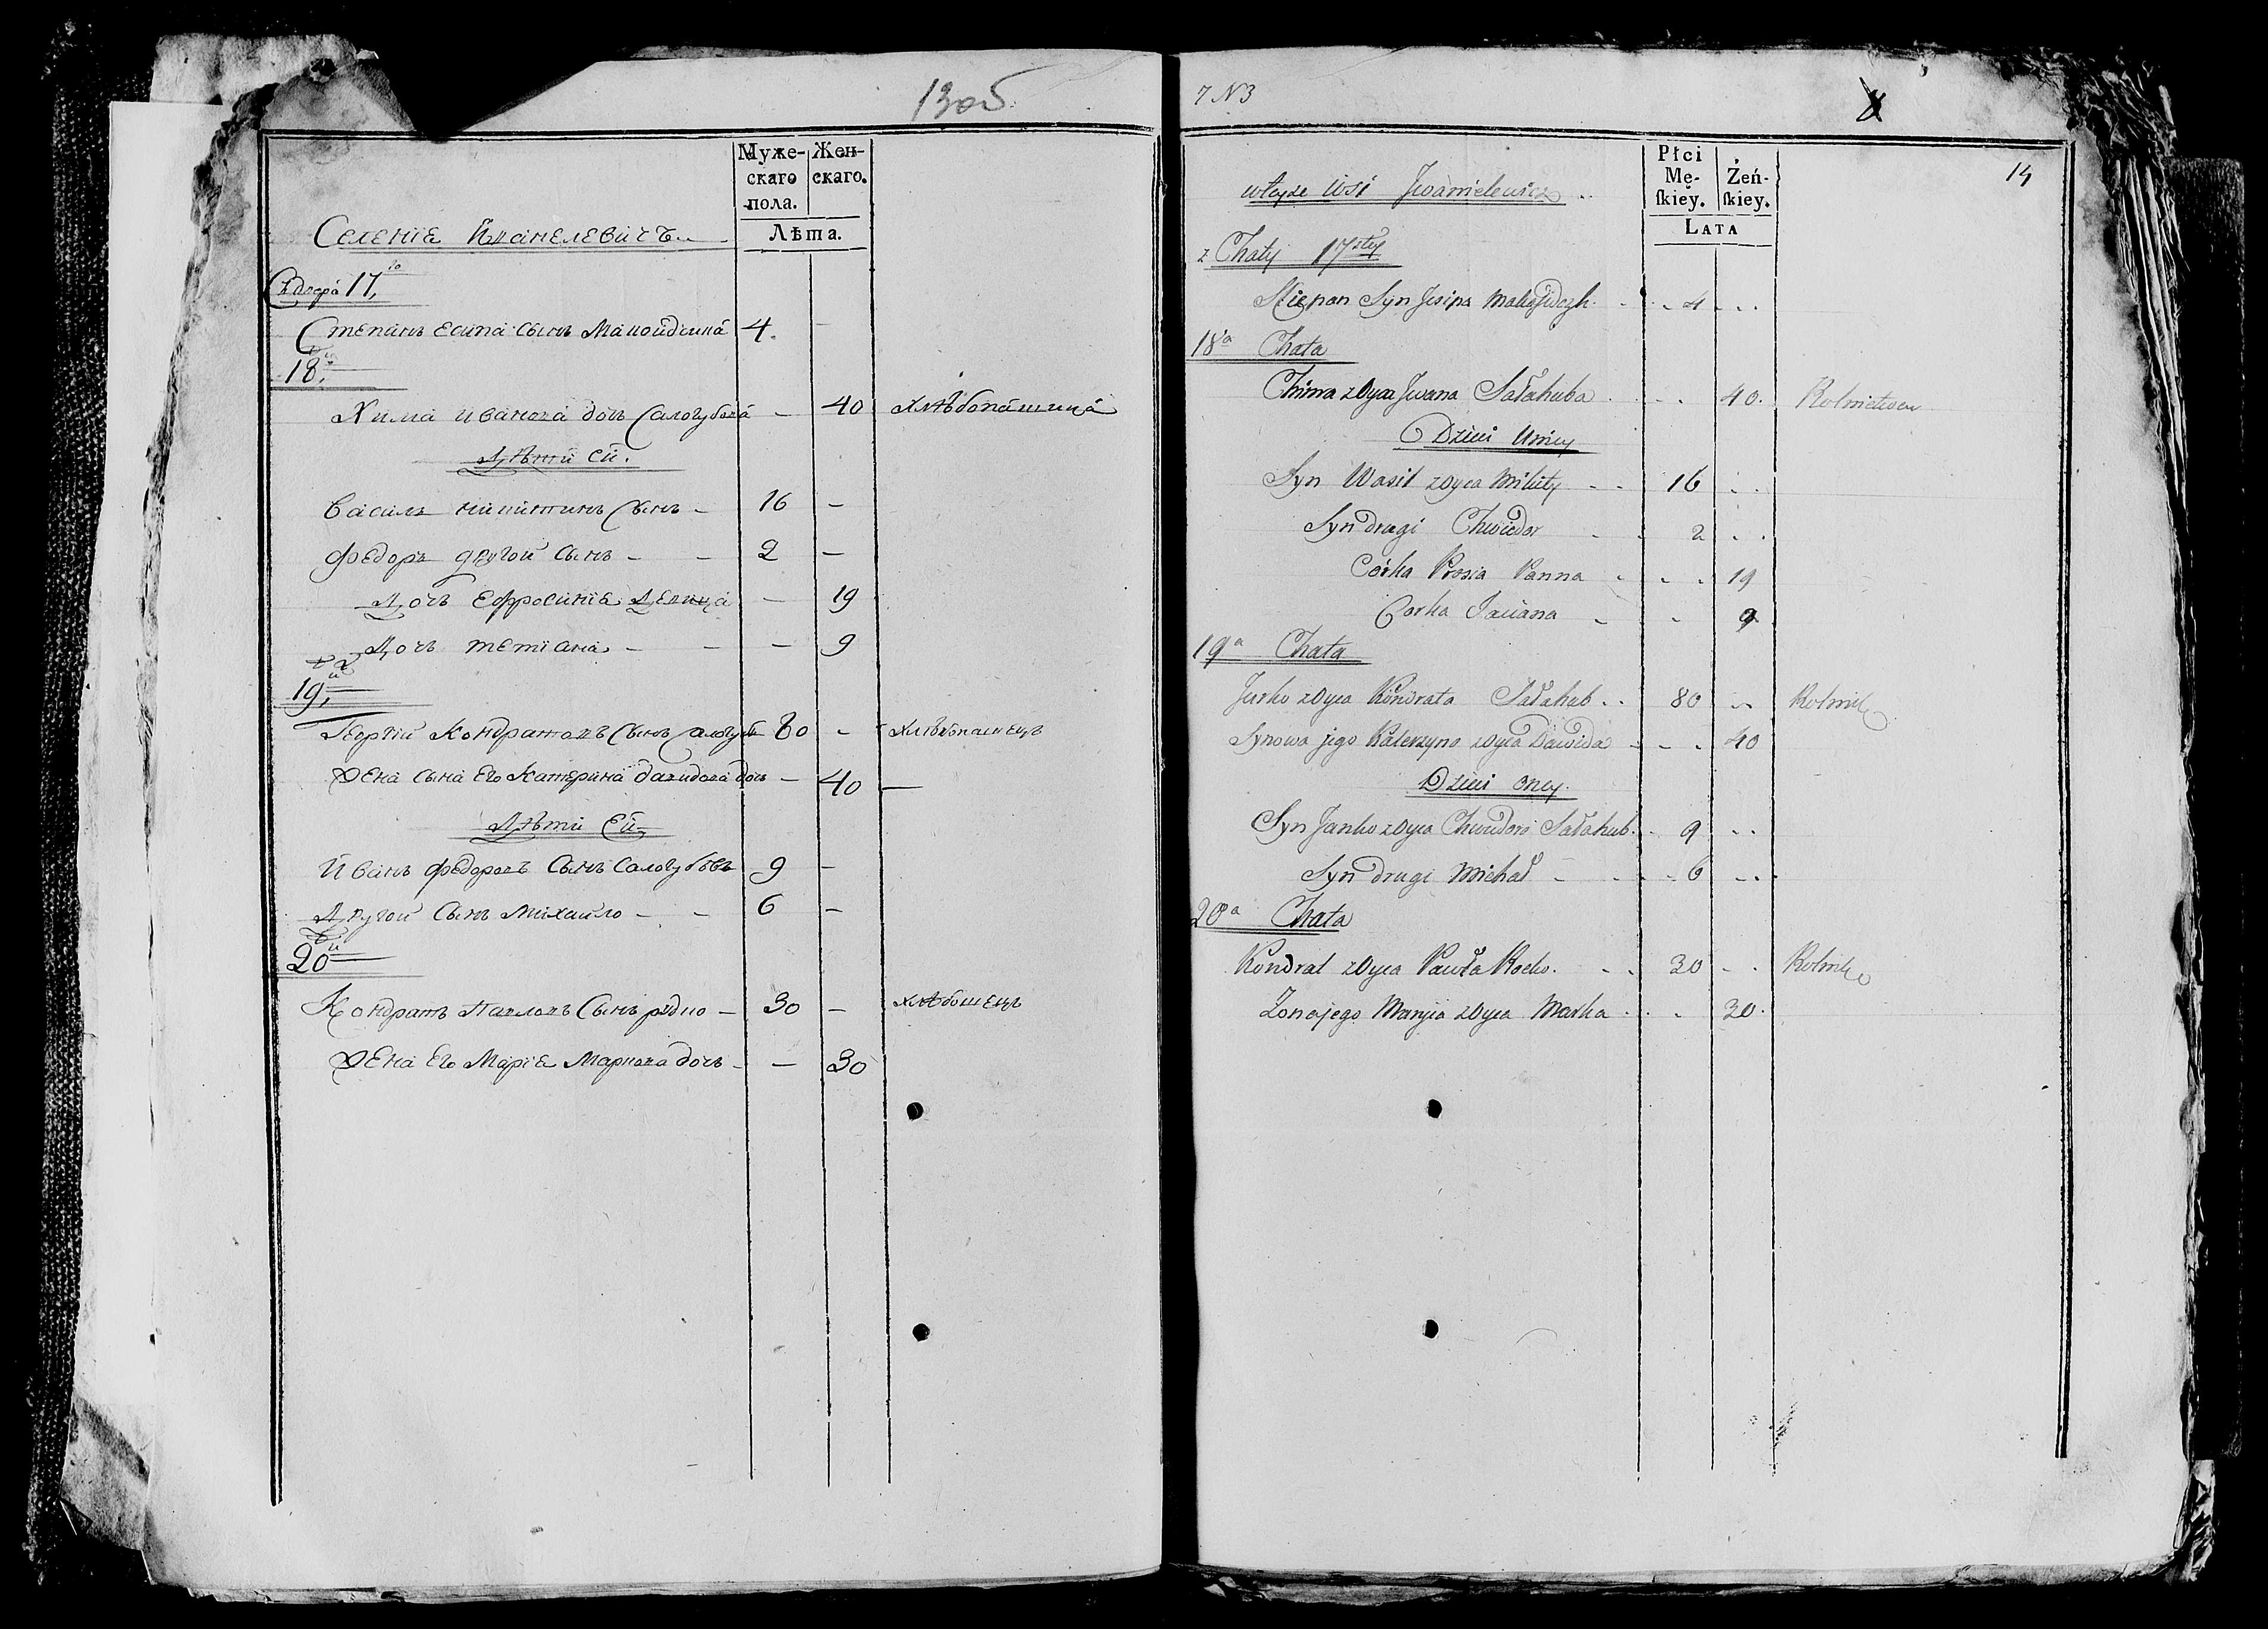 13об.
Муже-
скаго
пола.
Жен-
скаго.
Лѣта.
Селение Иванелевичъ
17
Степанъ Есипа сынъ 4. –
18.
Хима Иванова дочь Сало́губова – 40 хлѣбопашица
Дѣти ей.
Василь Никитинъ сынъ – 16 –
Федоръ другой сынъ – – 2 –
Дочь Ефросиниа Девица – 19
Дочь Тетиана – – – 9
19.
Георгий Кондратовъ сынъ Салогубъ 80 – хлѣбопашецъ
Жена сына его Катерина Давидова дочь – 40 –
Дѣти ей
Иванъ Федоровъ сынъ Салогубовъ 9 –
Другой сынъ Михайло – – 6 –
20
Кондратъ Павловъ сынъ – 30 –
Жена его Марiа Маркова дочь – – 30
7 N3
14
Płci
Mę-
ſkiey.
Żeń-
ſkiey.
LATA
wteyże wsi Iwanielewicz
z Chaty 17stey
Stiepan Syn Josipa 4
18a Chata
Chima zOyca Jwana Sałahuba 40. Rolnictwem
Dzieci
Syn Wasil zOyca Mikity 16
Syn drugi Chwiedor 2
Córka Prosia Panna 19
Corka Taciana 9
19a Chata
Jurko zOyca Kondrata Sałahub 80 Rolnik
Synowa jego Katerzyna zOyca Dawida 40
Dzieci oney.
Syn Janko zOyca Chwiedora Sałahub 9
Syn drugi Michał 6
20a Chata
Kondrat zOyca Pawła 30 Rolnik
Żona jego Maryia zOyca Marka 30.